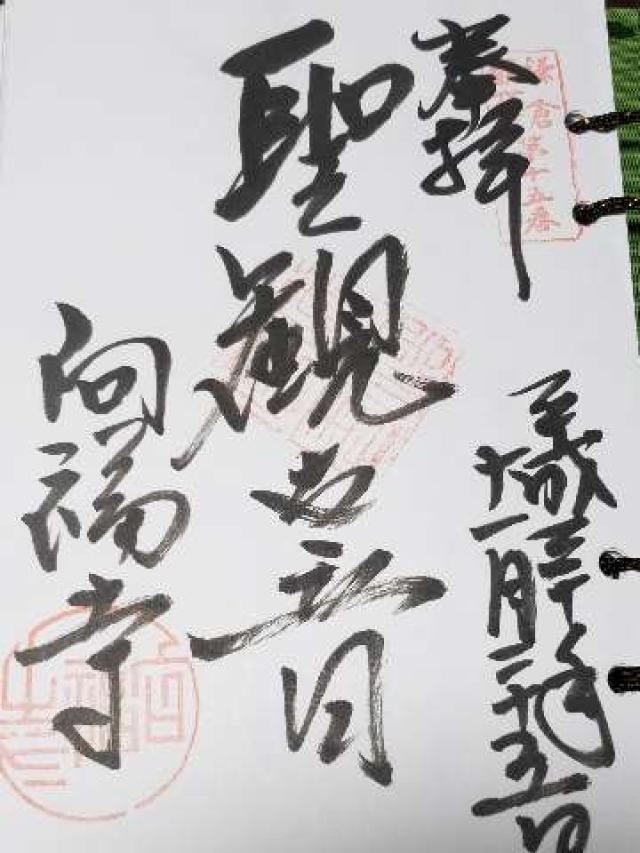 奉拝
鎌倉第十五番
平成三十年
一月二十五日
聖観世音
向福寺